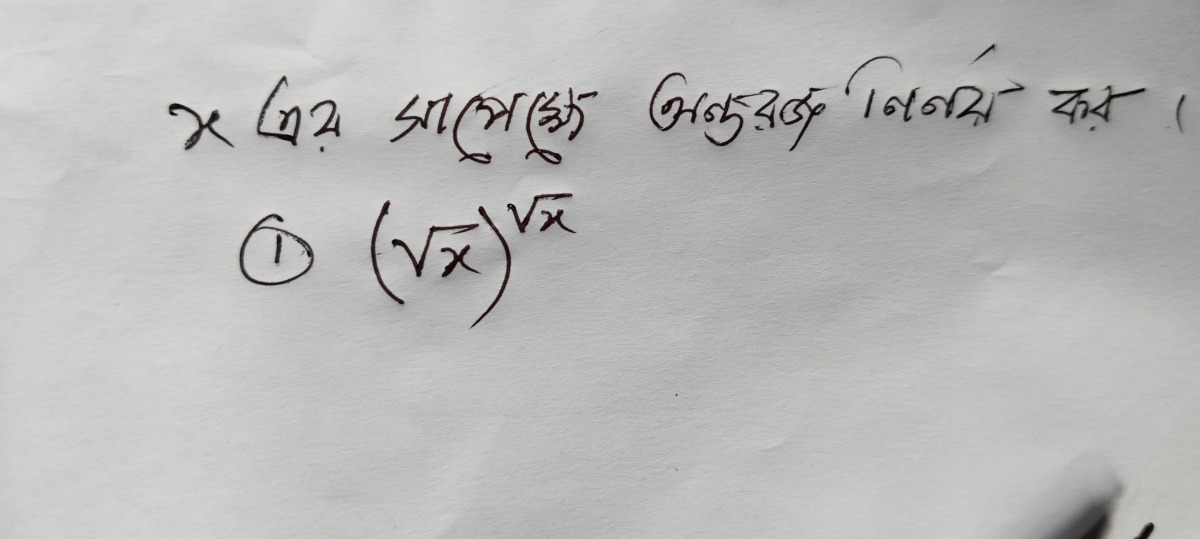 x এর সাপেক্ষে অন্তরজ নির্ণয় কর।
① (√x)^√x